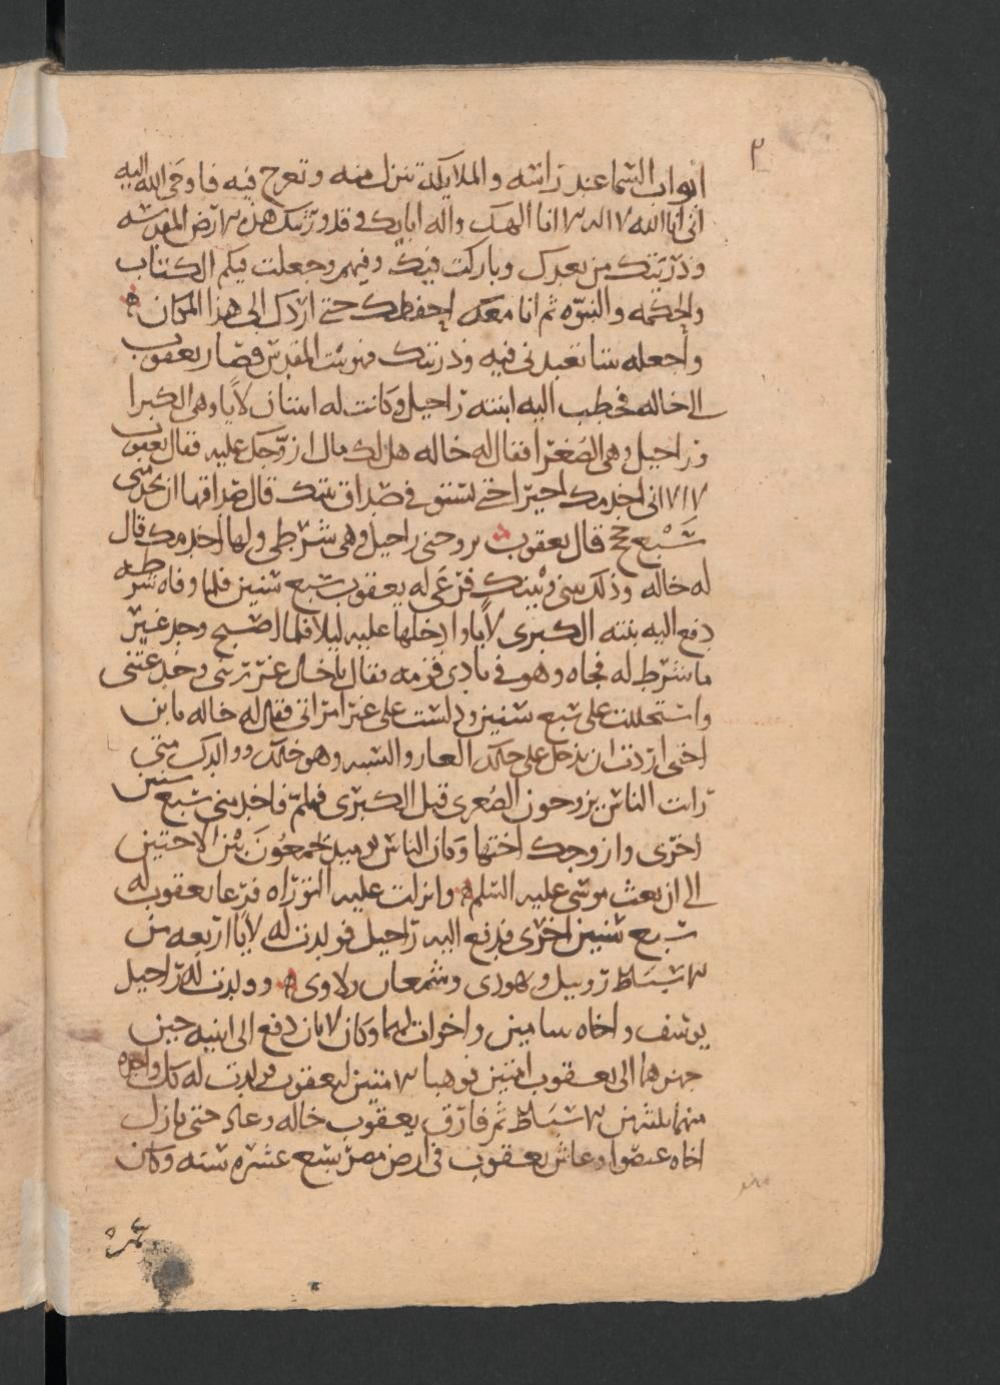 ٣
ابواب السما عند راسه والملايكة تنزل منه وتعرج فيه فاوحى الله اليه
انى انا الله لا اله الا انا الهك واله ابايك وقد ورثتك هذه الارض المقدسه
وذريتك من بعدك وباركت فيك وفيهم وجعلت فيكم الكتاب
والحكمه والنبوه ثم انا معك احفظك حتى اردك الى هذا المكان
واجعله بيتا تعبدنى فيه وذريتك فهو بيت المقدس فصار يعقوب
الى خاله فخطب اليه ابنته راحيل وكانت له ابنتان لايا وهى الكبرا
وراحيل وهى الصغرا فقال له خاله هل لك مال ازوجك عليه فقال يعقوب
لا الا انى اخدمك اجيرا حتى تستوفى صداق بنتك قال صداقها ان تخدمنى
سبع حجج قال يعقوب تزوجنى راحيل وهى شرطى ولها اخدمك قال
له خاله وذلك بينى وبينك فرعى له يعقوب سبع سنين فلما وفاه شرطه
دفع اليه بنته الكبرى لايا وادخلها عليه ليلا فلما اصبح وجد غير
ما شرط له فجاه وهو فى نادى قومه فقال يا خال غررتنى وخدعتنى
واستحللت على سبع سنين ودلست على غير امراتى فقال له خاله يا بن
اختى اردت ان تدخل على خالك العار والسبه وهو خالك ووالدك متى
رايت الناس يزوجون الصغرى قبل الكبرى فهلم فاخدمنى سبع سنين
اخرى وازوجك اختها وكان الناس يوميذ يجمعون بين الاختين
الى ان بعث موسى عليه السلم وانزلت عليه التوراه فرعا يعقوب له
سبع سنين اخرى فدفع اليه راحيل فولدت له لايا اربعه من
الاسباط روبيل ويهودى وشمعان ولاوى وولدت له راحيل
يوسف واخاه بنيامين واخوات لهما وكان لابان دفع الى ابنتيه حين
جهزهما الى يعقوب امتين فوهبا الامتين ليعقوب فولدت له كل واحده
منهما ثلثه من الاسباط ثم فارق يعقوب خاله وعاد حتى نازل
اخاه عيصوا وعاش يعقوب فى ارض مصر سبع عشره سنه وكان